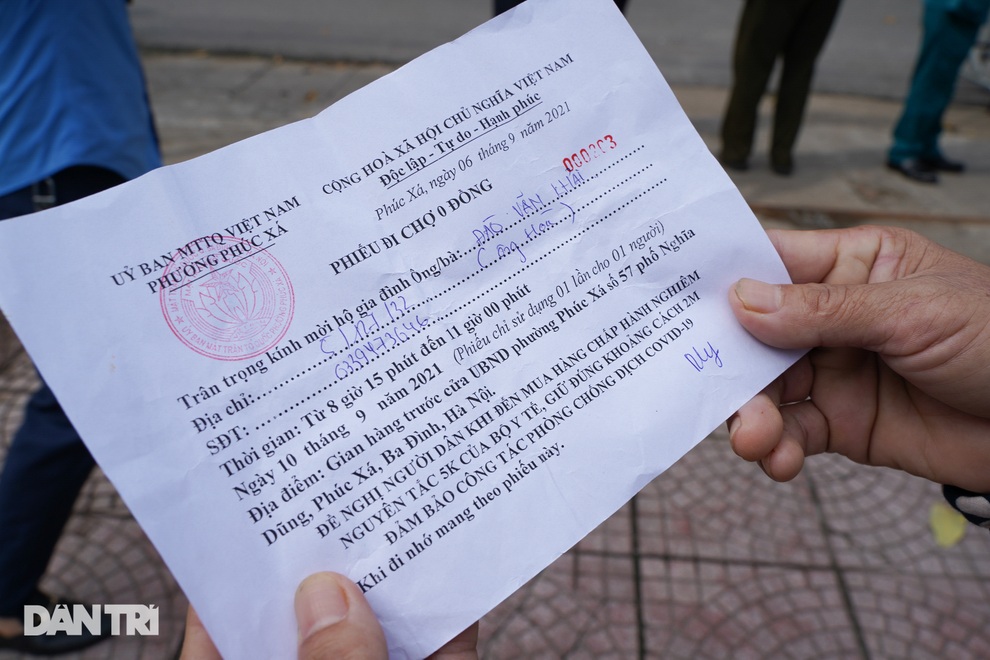 UỶ BAN MTTQ VIỆT NAM
PHƯỜNG PHÚC XÁ
CỘNG HOÀ XÃ HỘI CHỦ NGHĨA VIỆT NAM
Độc lập - Tự do - Hạnh phúc
Phúc Xá, ngày 06 tháng 9 năm 2021
PHIẾU ĐI CHỢ 0 ĐỒNG
Trân trọng kính mời hộ gia đình Ông/bà: ĐÀO VĂN KHẢI
Địa chỉ:
SĐT:
Thời gian: Từ 8 giờ 15 phút đến 11 giờ 00 phút
Ngày 10 tháng 9 năm 2021 (Phiếu chỉ sử dụng 01 lần cho 01 người)
Địa điểm: Gian hàng trước cửa UBND phường Phúc Xá số 57 phố Nghĩa
Dũng, Phúc Xá, Ba Đình, Hà Nội.
ĐỀ NGHỊ NGƯỜI DÂN KHI ĐẾN MUA HÀNG CHẤP HÀNH NGHIÊM
NGUYÊN TẮC 5K CỦA BỘ Y TẾ, GIỮ ĐÚNG KHOẢNG CÁCH 2M
ĐẢM BẢO CÔNG TÁC PHÒNG CHỐNG DỊCH COVID-19
Khi đi nhớ mang theo phiếu này.
DÂN TRÍ